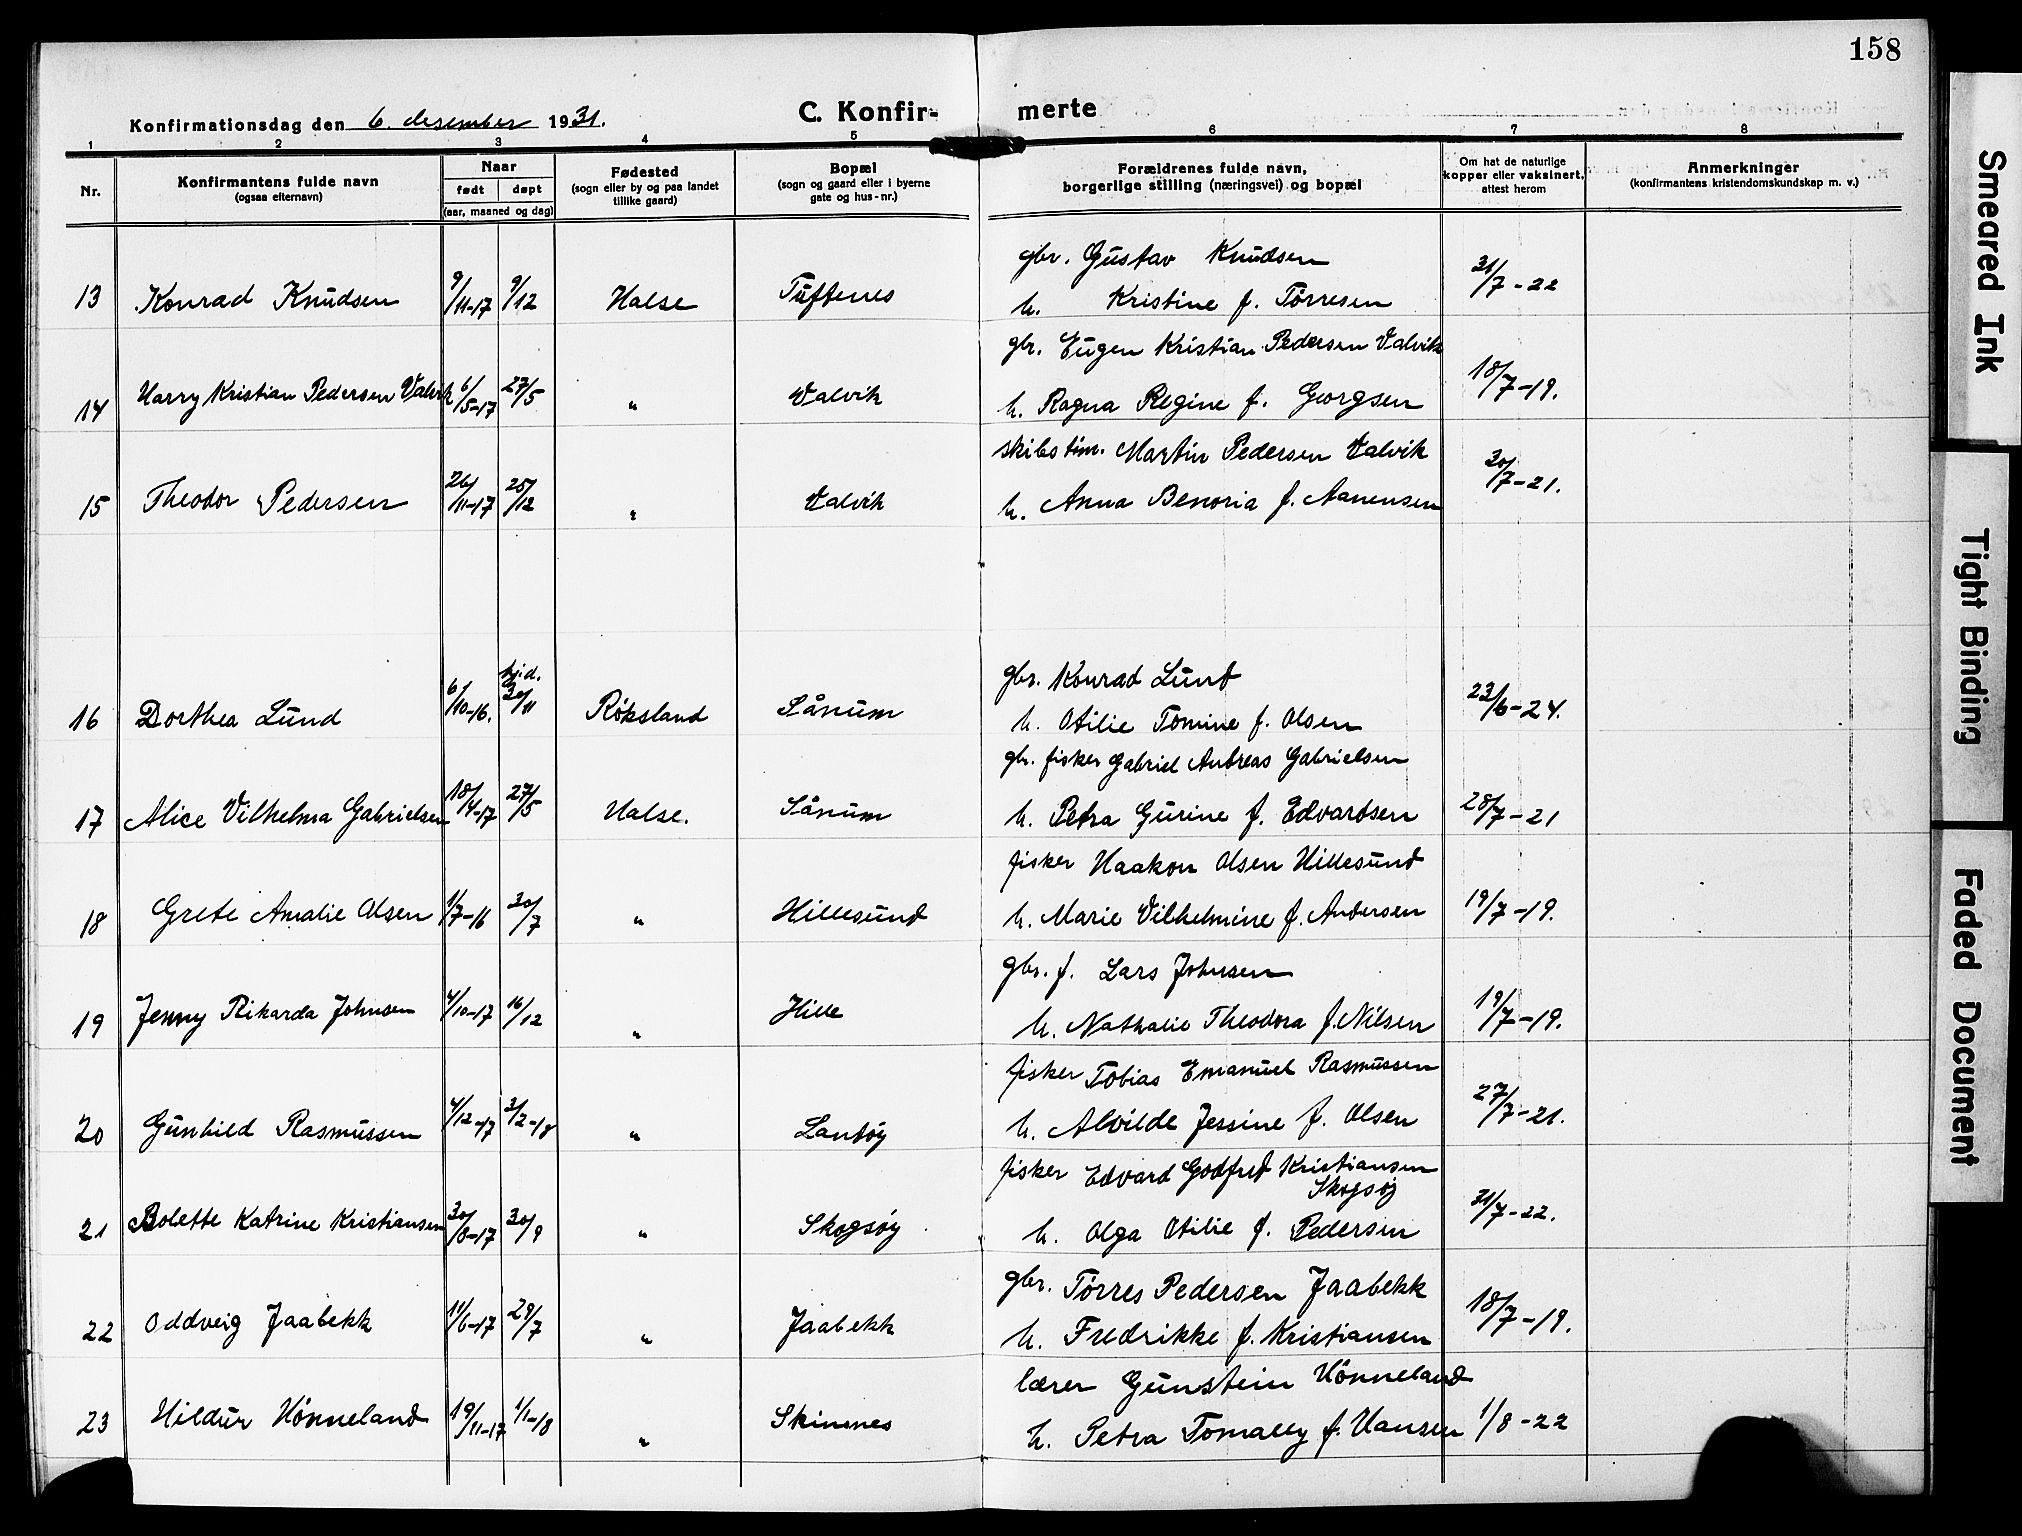 158
Konfirmationsdag den 6. desember 1931. C. Konfirmerte
1 2 3 4 5 6 7 8
Nr. Konfirmantens fulde navn (ogsaa efternavn) Naar født døpt (aar, maaned og dag) Fødested (sogn eller by og paa landet tillike gaard) Bopæl (sogn og gaard eller i byerne gate og hus-nr.) Forældrenes fulde navn, borgerlige stilling (næringsvei) og bopæl Om hat de naturlige kopper eller vaksinert, attest herom Anmerkninger (konfirmantens kristendomskundskap m. v.)
gbr. Gustav Knudsen
13 Konrad Knudsen 9/11-17 9/12 Halse Tuftenes h. Kristine f. Tørresen 31/7-22
gbr. Eugen Kristian Pedersen Valvik
14 Harry Kristian Pedersen Valvik 6/5-17 27/5 " Valvik h. Ragna Regine f. Georgsen 18/7-19.
skibstim. Martin Pedersen Valvik
15 Theodor Pedersen 26/11-17 25/12 " Valvik h. Anna Benoria f. Aanensen 30/7-21.
hjd. gbr. Konrad Lund
16 Dorthea Lund 6/10-16. 30/11 Røksland Sånum h. Otilie Tomine f. Olsen 23/6-24.
gbr. fisker Gabriel Andreas Gabrielsen
17 Alice Vilhelma Gabrielsen 18/4-17 27/5 Halse. Sånum h. Petra Gurine f. Edvardsen 28/7-21
fisker Haakon Olsen Hillesund
18 Grete Amalie Olsen 1/7-16 30/7 " Hillesund h. Marie Vilhelmine f. Andersen 19/7-19.
gbr. f. Lars Johnsen
19 Jenny Rikarda Johnsen 4/10-17 16/12 " Hille h. Nathalie Theodora f. Nilsen 19/7-19.
fisker Tobias Emanuel Rasmussen
20 Gunhild Rasmussen 4/12-17 3/2-18 " Landøy h. Alvilde Jessine f. Olsen 27/7-21.
fisker Edvard Godfred Kristiansen
Skogsøy
21 Bolette Katrine Kristiansen 30/8-17 30/9 " Skogsøy h. Olga Otilie f. Pedersen 31/7-22.
gbr. Tørres Pedersen Jaabekk
22 Oddveig Jaabekk 11/6-17 29/7 " Jaabekk h. Fredrikke f. Kristiansen 18/7-19.
lærer Gunstein Hønneland
23 Hildur Hønneland 19/11-17 1/1-18 " Skinsnes h. Petra Tomally f. Hansen 1/8-22
Smeared Ink
Tight Binding
Faded Document